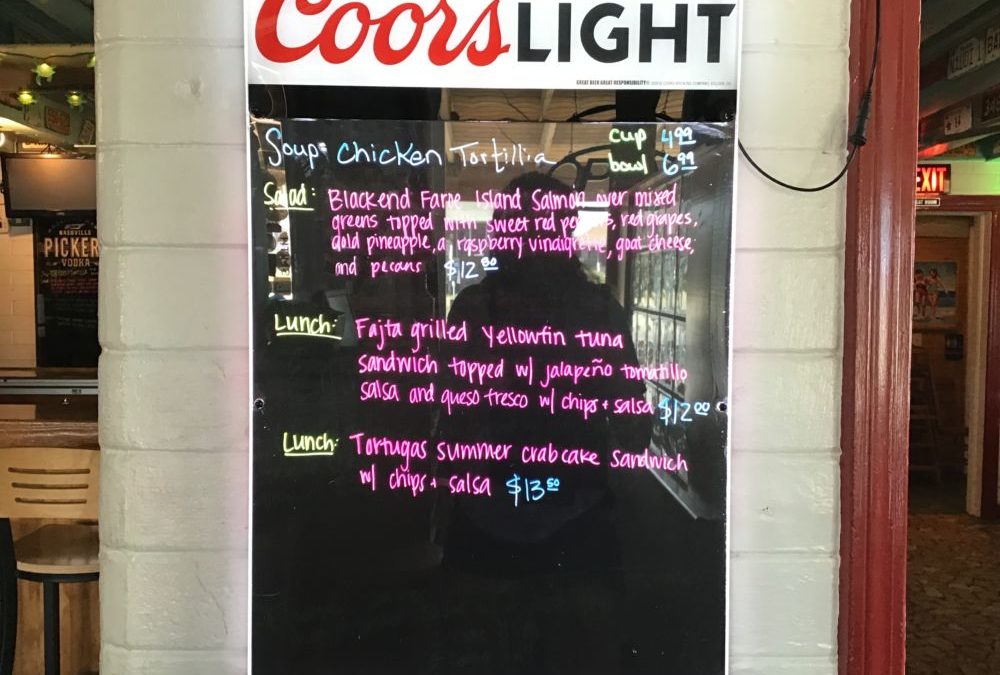 Coors LIGHT
GREAT BEER GREAT RESPONSIBILITY®
Soup: Chicken Tortillia cup 4.99
bowl 6.99
Salad: Blackend Faroe Island Salmon over mixed
greens topped with sweet red peppers, red grapes,
gold pineapple, a raspberry vindigrette, goat cheese,
and pecans $12.50
Lunch: Fajta grilled Yellowfin tuna
sandwich topped w/ jalapeño tomatillo
salsa and queso fresco w/ chips + salsa $12.00
Lunch: Tortugas summer crabcake sandwich
w/ chips + salsa $13.50
NASHVILLE
PICKER
VODKA
EXIT